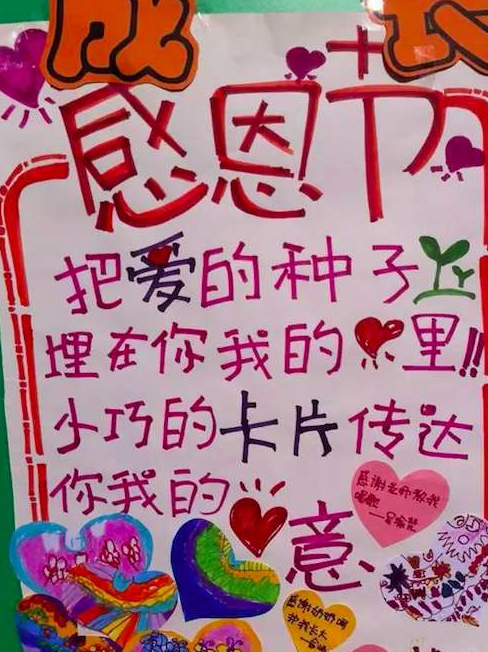 成长
感恩节
把爱的种子
埋在你我的里!!
小巧的卡片传达
你我的
意
感谢老师教我
唱歌
感谢奶奶
护我长大